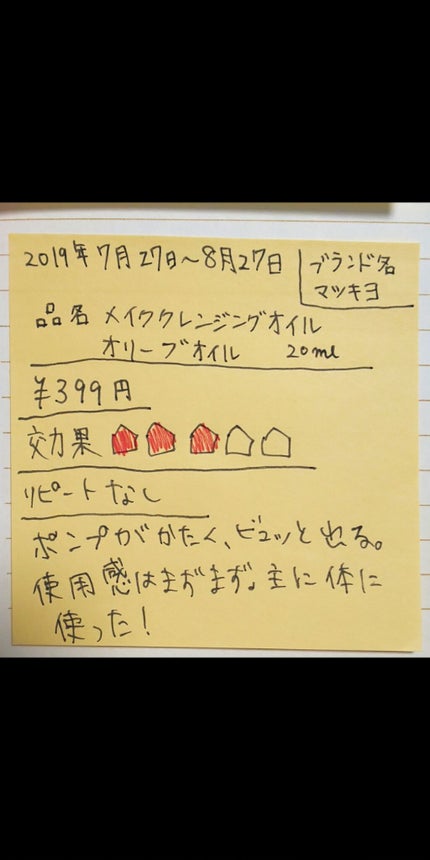 2019年7月27日~8月27日
ブランド名
マツキヨ
品名 メイククレンジングオイル
オリーブオイル 20ml
¥399円
効果
リピートなし
ポンプがかたく、ビュッと出る。
使用感はまずまず。主に体に
使った!